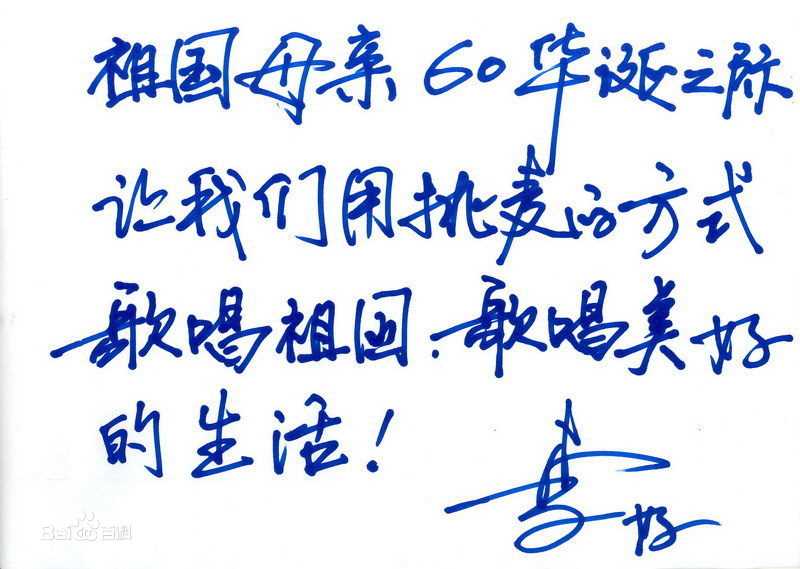 祖国母亲60华诞之际
让我们用挑麦的方式
歌唱祖国.歌唱美好
的生活！
李好
Bai百科